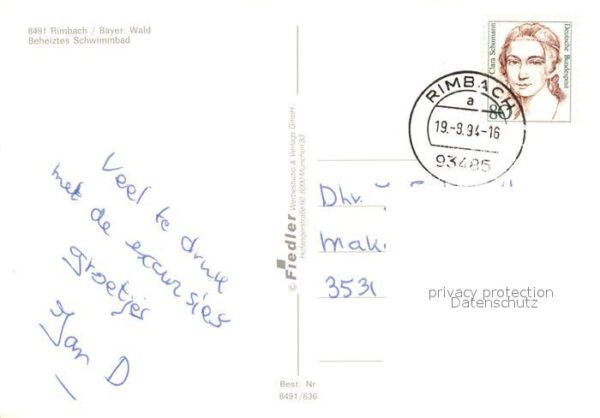 8491 Rimbach / Bayer. Wald
Beheiztes Schwimmbad
Veel te druk
met de excursies
groetjes
Jan D
© Fiedler Werbestudio & Verlags GmbH.
Hofangerstraße 60, 8000 München 83
Best Nr
8491/636
Clara Schumann
Deutsche Bundespost
80
RIMBACH
a
19.-9.94-16
93485
Dhr.
Mak
3531
privacy protection
Datenschutz